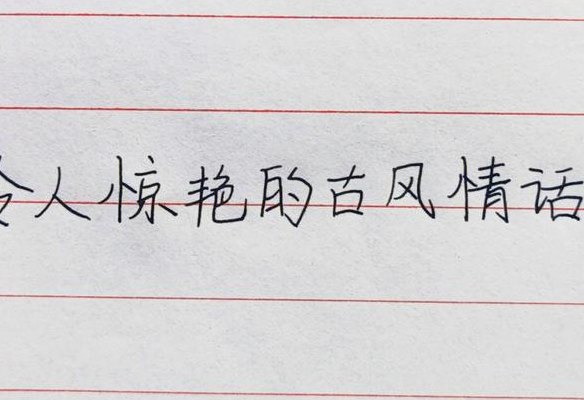 令人惊艳的古风情话